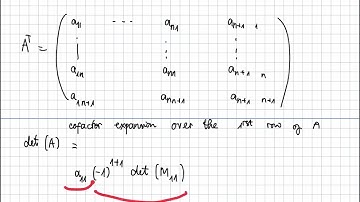 a₁₁ --- aₙ₁ aₙ₊₁ ₁
Aᵀ =
a₁ₙ aₙₙ aₙ₊₁ ₙ
a₁ₙ₊₁ aₙₙ₊₁ aₙ₊₁ ₙ₊₁
cofactor expansion over the 1st row of A
det(A) =
a₁₁ (-1)¹⁺¹ det(M₁₁)